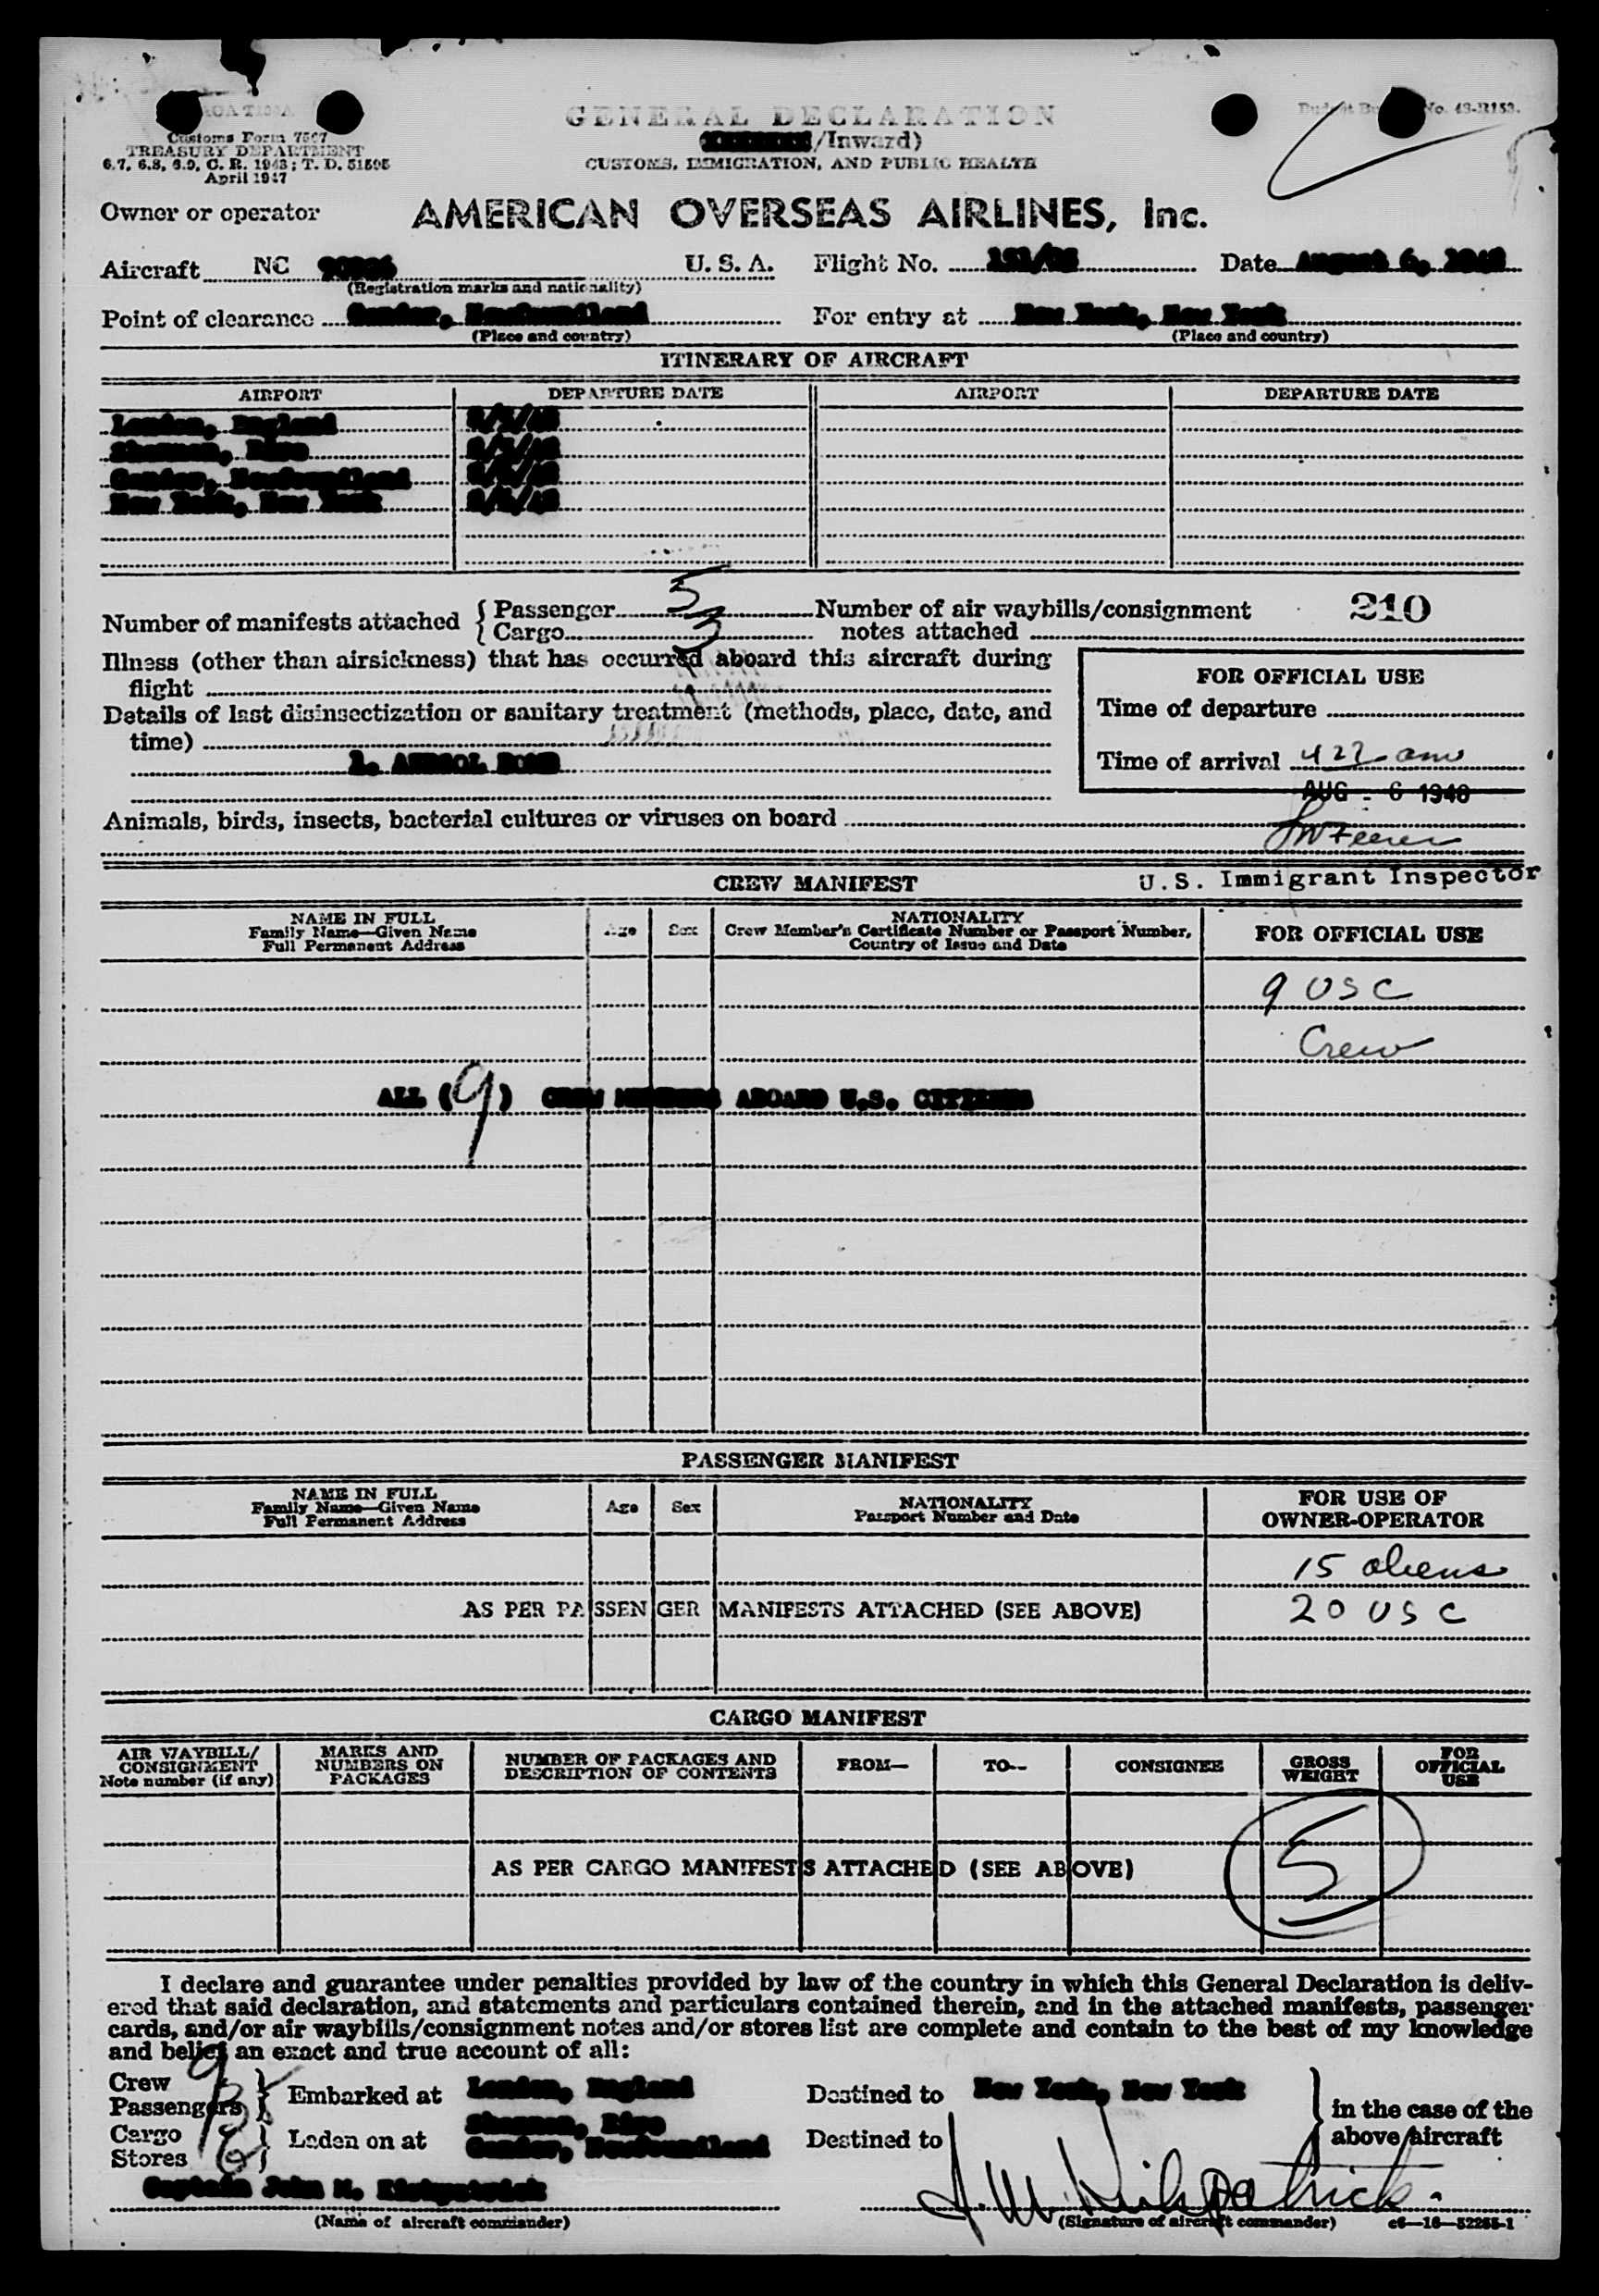 Customs Form 7507
TREASURY DEPARTMENT
6.7, 6.8, 6.9, C. R. 1943; T. D. 51595
April 1947
GENERAL DECLARATION
/Inward)
CUSTOMS, IMMIGRATION, AND PUBLIC HEALTH
No. 43-R153.
Owner or operator AMERICAN OVERSEAS AIRLINES, Inc.
Aircraft NC U. S. A. Flight No. Date August 6, 1948
(Registration marks and nationality)
Point of clearance Gander, Newfoundland For entry at New York, New York
(Place and country) (Place and country)
ITINERARY OF AIRCRAFT
AIRPORT DEPARTURE DATE AIRPORT DEPARTURE DATE
London, England
Shannon, Eire
Gander, Newfoundland
New York, New York
Number of manifests attached { Passenger 5 Number of air waybills/consignment 210
Cargo notes attached
Illness (other than airsickness) that has occurred aboard this aircraft during
flight
Details of last disinsectization or sanitary treatment (methods, place, date, and
time)
1. AEROSOL BOMB
FOR OFFICIAL USE
Time of departure
Time of arrival 422 am
AUG - 6 1948
Animals, birds, insects, bacterial cultures or viruses on board
U.S. Immigrant Inspector
CREW MANIFEST
NAME IN FULL
Family Name—Given Name
Full Permanent Address
Age Sex
NATIONALITY
Crew Member's Certificate Number or Passport Number,
Country of Issue and Date
FOR OFFICIAL USE
9 USC
Crew
ALL (9) CREW MEMBERS ABOARD U.S. CITIZENS
PASSENGER MANIFEST
NAME IN FULL
Family Name—Given Name
Full Permanent Address
Age Sex
NATIONALITY
Passport Number and Date
FOR USE OF
OWNER-OPERATOR
15 aliens
AS PER PASSENGER MANIFESTS ATTACHED (SEE ABOVE) 20 USC
CARGO MANIFEST
AIR WAYBILL/
CONSIGNMENT
Note number (if any)
MARKS AND
NUMBERS ON
PACKAGES
NUMBER OF PACKAGES AND
DESCRIPTION OF CONTENTS
FROM— TO— CONSIGNEE
GROSS
WEIGHT
FOR
OFFICIAL
USE
AS PER CARGO MANIFESTS ATTACHED (SEE ABOVE) 5
I declare and guarantee under penalties provided by law of the country in which this General Declaration is deliv-
ered that said declaration, and statements and particulars contained therein, and in the attached manifests, passenger
cards, and/or air waybills/consignment notes and/or stores list are complete and contain to the best of my knowledge
and belief an exact and true account of all:
Crew 9
Passengers } Embarked at London, England Destined to New York, New York } in the case of the
Shannon, Eire above aircraft
Cargo
Stores } Laden on at Gander, Newfoundland Destined to
Captain John M. Kirkpatrick J. M. Kirkpatrick
(Name of aircraft commander) (Signature of aircraft commander) c6—16—52255-1